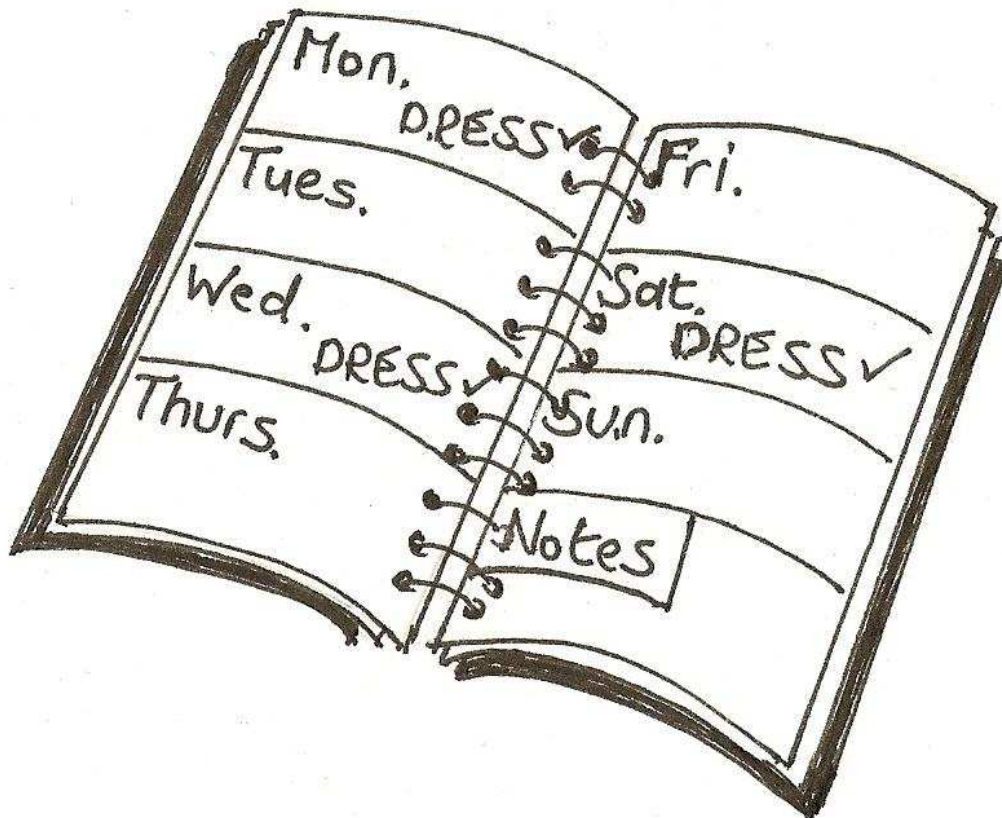 Mon.
DRESS ✓
Tues.
Wed.
DRESS ✓
Thurs.
Fri.
Sat.
DRESS ✓
Sun.
Notes